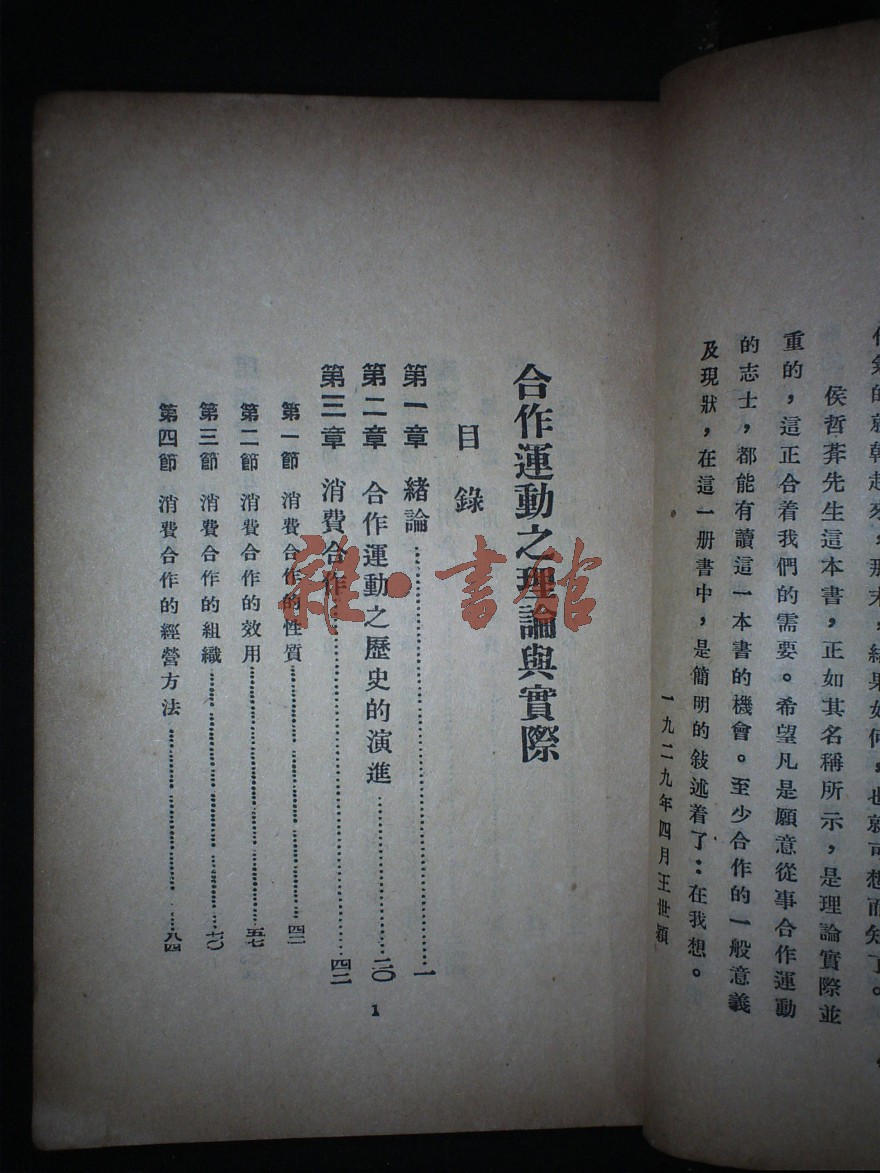 就幹起來，那末，結果如何，也就可想而知了。
侯哲葊先生這本書，正如其名稱所示，是理論實際並
重的，這正合着我們的需要。希望凡是願意從事合作運動
的志士，都能有讀這一本書的機會。至少合作的一般意義
及現狀，在這一册書中，是簡明的敍述着了：在我想。
一九二九年四月王世穎
合作運動之理論與實際
目錄
第一章 緒論……一
第二章 合作運動之歷史的演進……二〇
第三章 消費合作……四二
第一節 消費合作的性質……四二
第二節 消費合作的效用……五七
第三節 消費合作的組織……七〇
第四節 消費合作的經營方法……八四
1
雜·書館